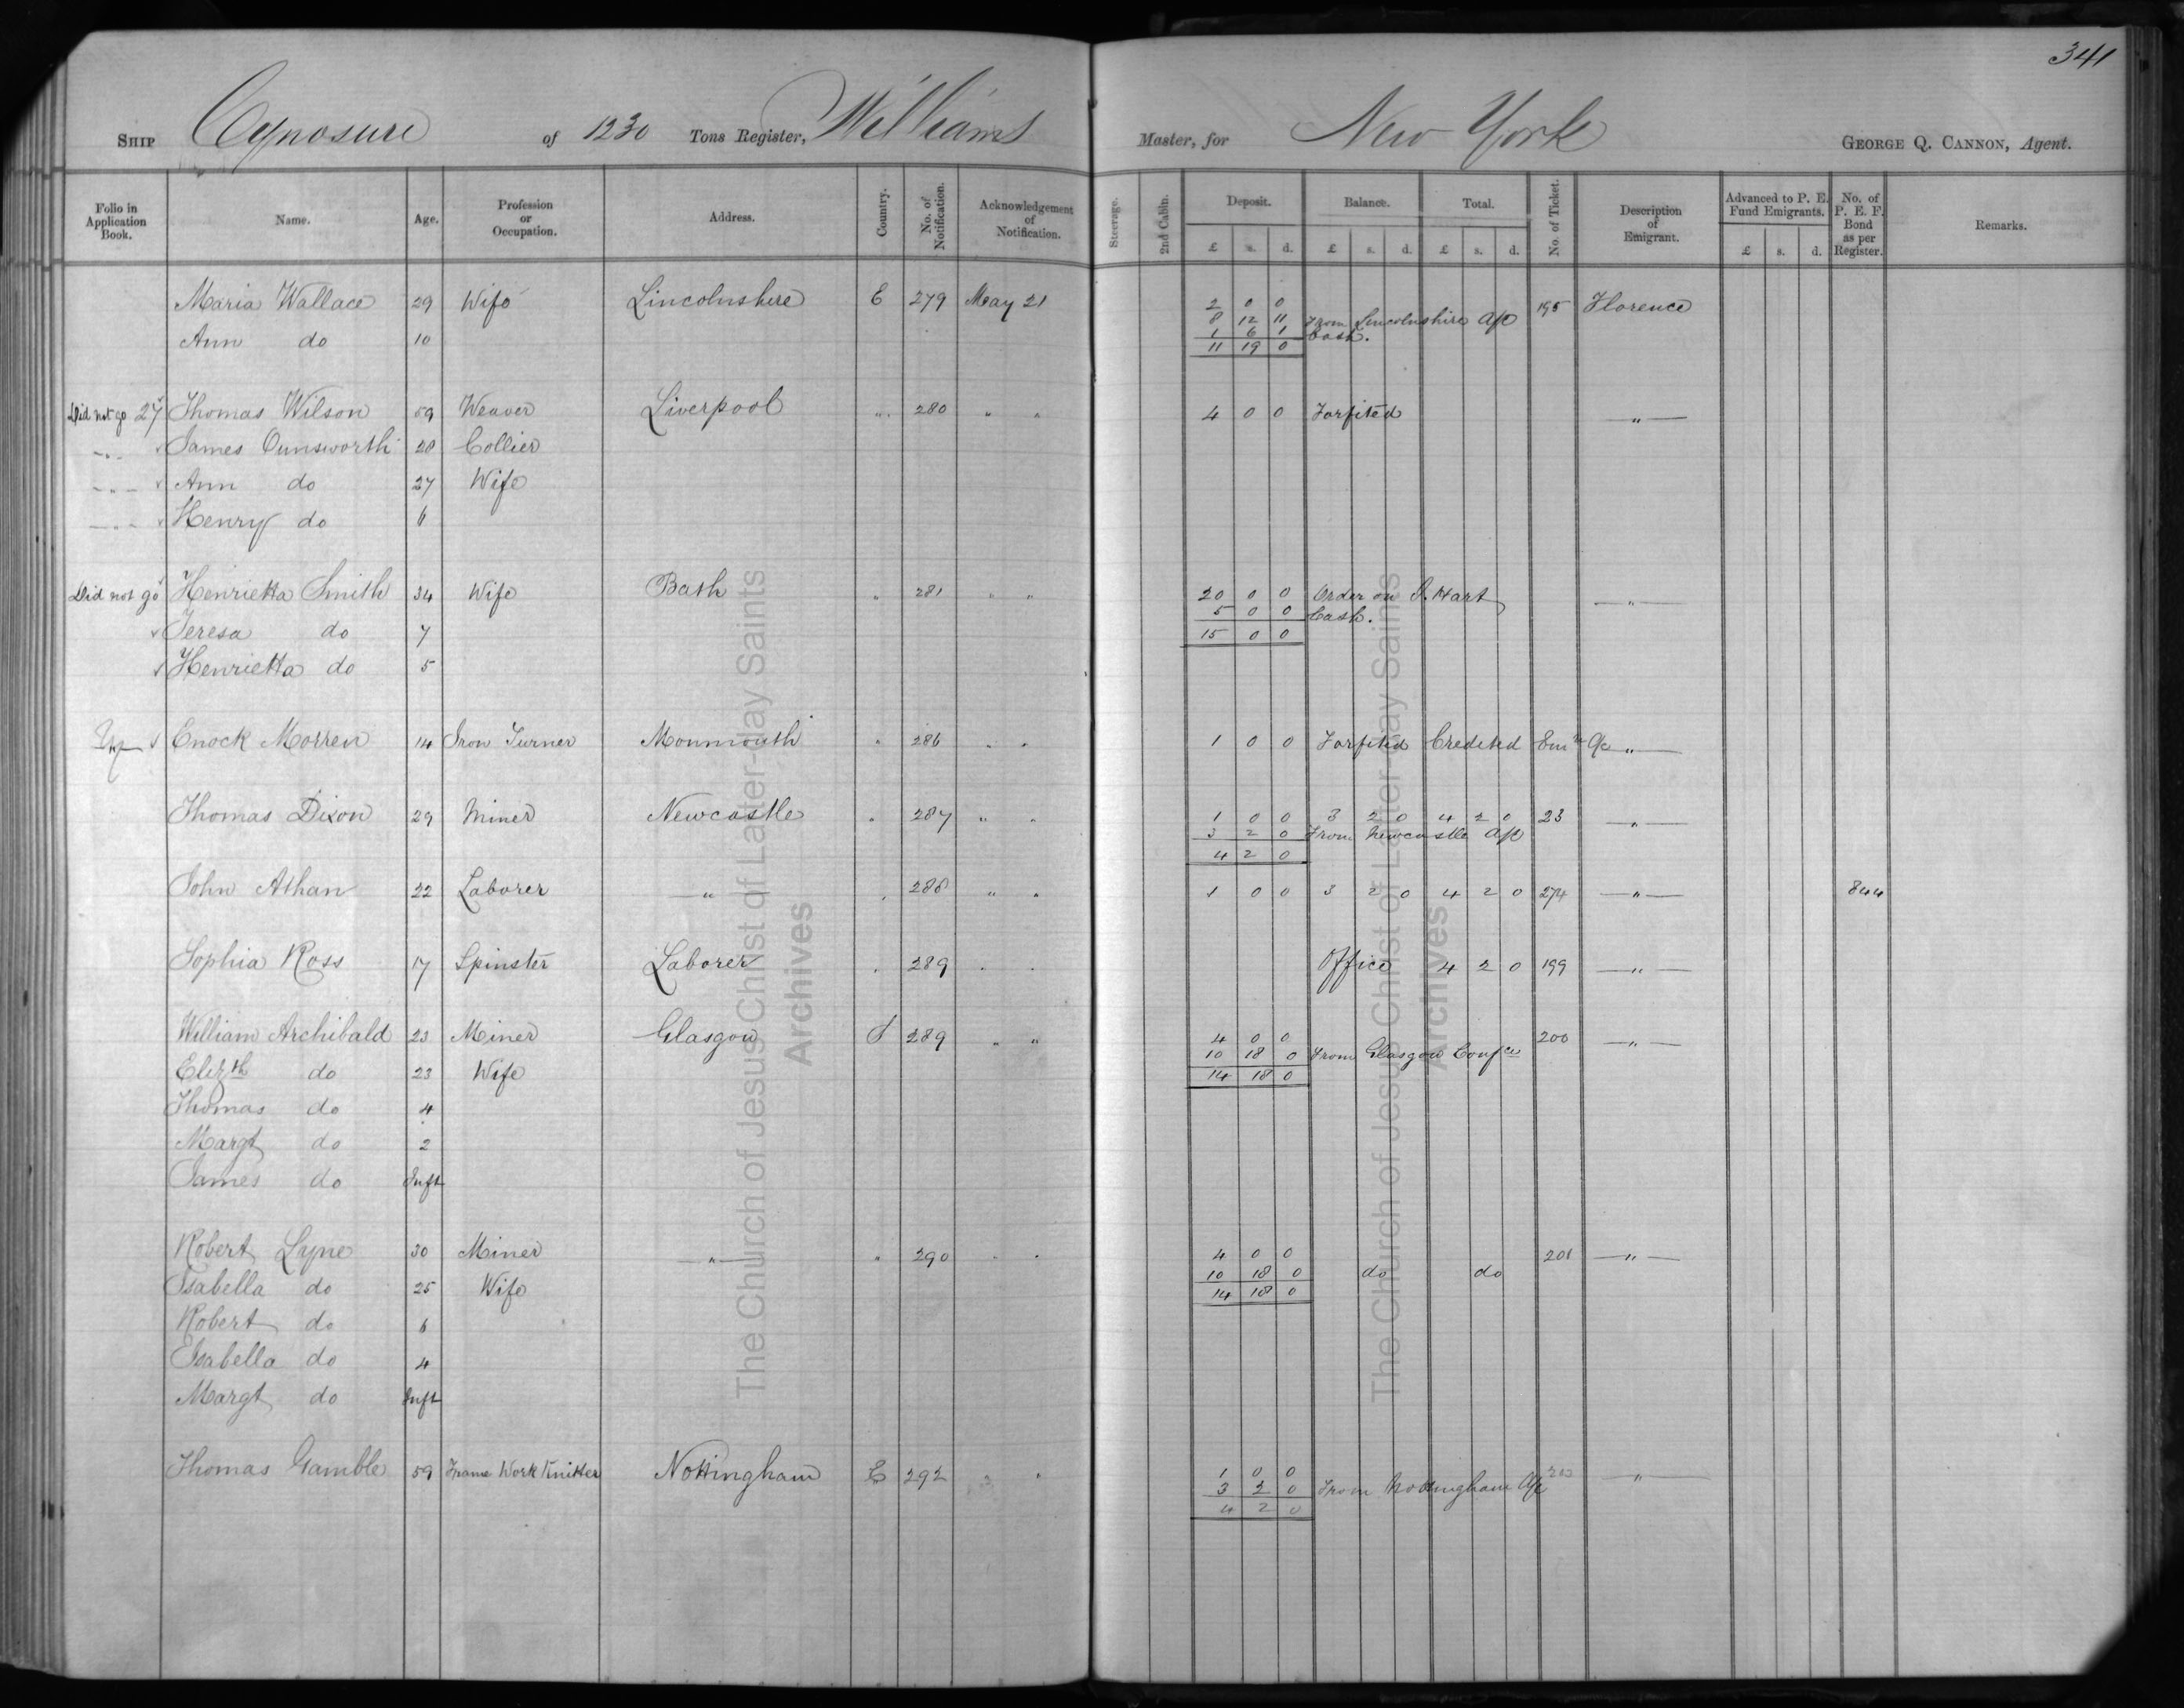 341
SHIP Cynosure of 1230 Tons Register, Williams Master, for New York GEORGE Q. CANNON, Agent.
Folio in Application Book. Name. Age. Profession or Occupation. Address. Country. No. of Notification. Acknowledgement of Notification. Steerage. 2nd Cabin. Deposit. Balance. Total. No. of Ticket. Description of Emigrant. Advanced to P. E. Fund Emigrants. No. of P. E. F. Bond as per Register. Remarks.
£ s. d. £ s. d. £ s. d. £ s. d.
Maria Wallace 29 Wife Lincolnshire E 279 May 21 2 0 0 195 Florence
8 12 11 From Lincolnshire A/c
Ann do 10 1 6 1 Cash.
11 19 0
Did not go 27 Thomas Wilson 59 Weaver Liverpool " 280 " " 4 0 0 Forfited "
" James Ounsworth 28 Collier
" Ann do 27 Wife
" Henry do 6
Did not go Henrietta Smith 34 Wife Bath " 281 " " 20 0 0 Order on J. Hart "
5 0 0 Cash.
Teresa do 7 15 0 0
Henrietta do 5
Enock Morren 14 Iron Turner Monmouth " 286 " " 1 0 0 Forfited Credited Emn a/c "
Thomas Dixon 29 Miner Newcastle " 287 " " 1 0 0 3 2 0 4 2 0 23 "
3 2 0 From Newcastle A/c
4 2 0
John Athan 22 Laborer " 288 " " 1 0 0 3 2 0 4 2 0 274 " 844
Sophia Ross 17 Spinster Laborer " 289 " " Office 4 2 0 199 "
William Archibald 23 Miner Glasgow S 289 " " 4 0 0 200 "
10 18 0 From Glasgow Confce
Elizth do 23 Wife 14 18 0
Thomas do 4
Margt do 2
James do Inft
Robert Lyne 30 Miner " " 290 " " 4 0 0 201 "
10 18 0 do do
Isabella do 25 Wife 14 18 0
Robert do 6
Isabella do 4
Margt do Inft
Thomas Gamble 59 Frame Work Knitter Nottingham E 292 " " 1 0 0 "
3 2 0 From Nottingham A/c
4 2 0
The Church of Jesus Christ of Latter-day Saints
Archives
The Church of Jesus Christ of Latter-day Saints
Archives